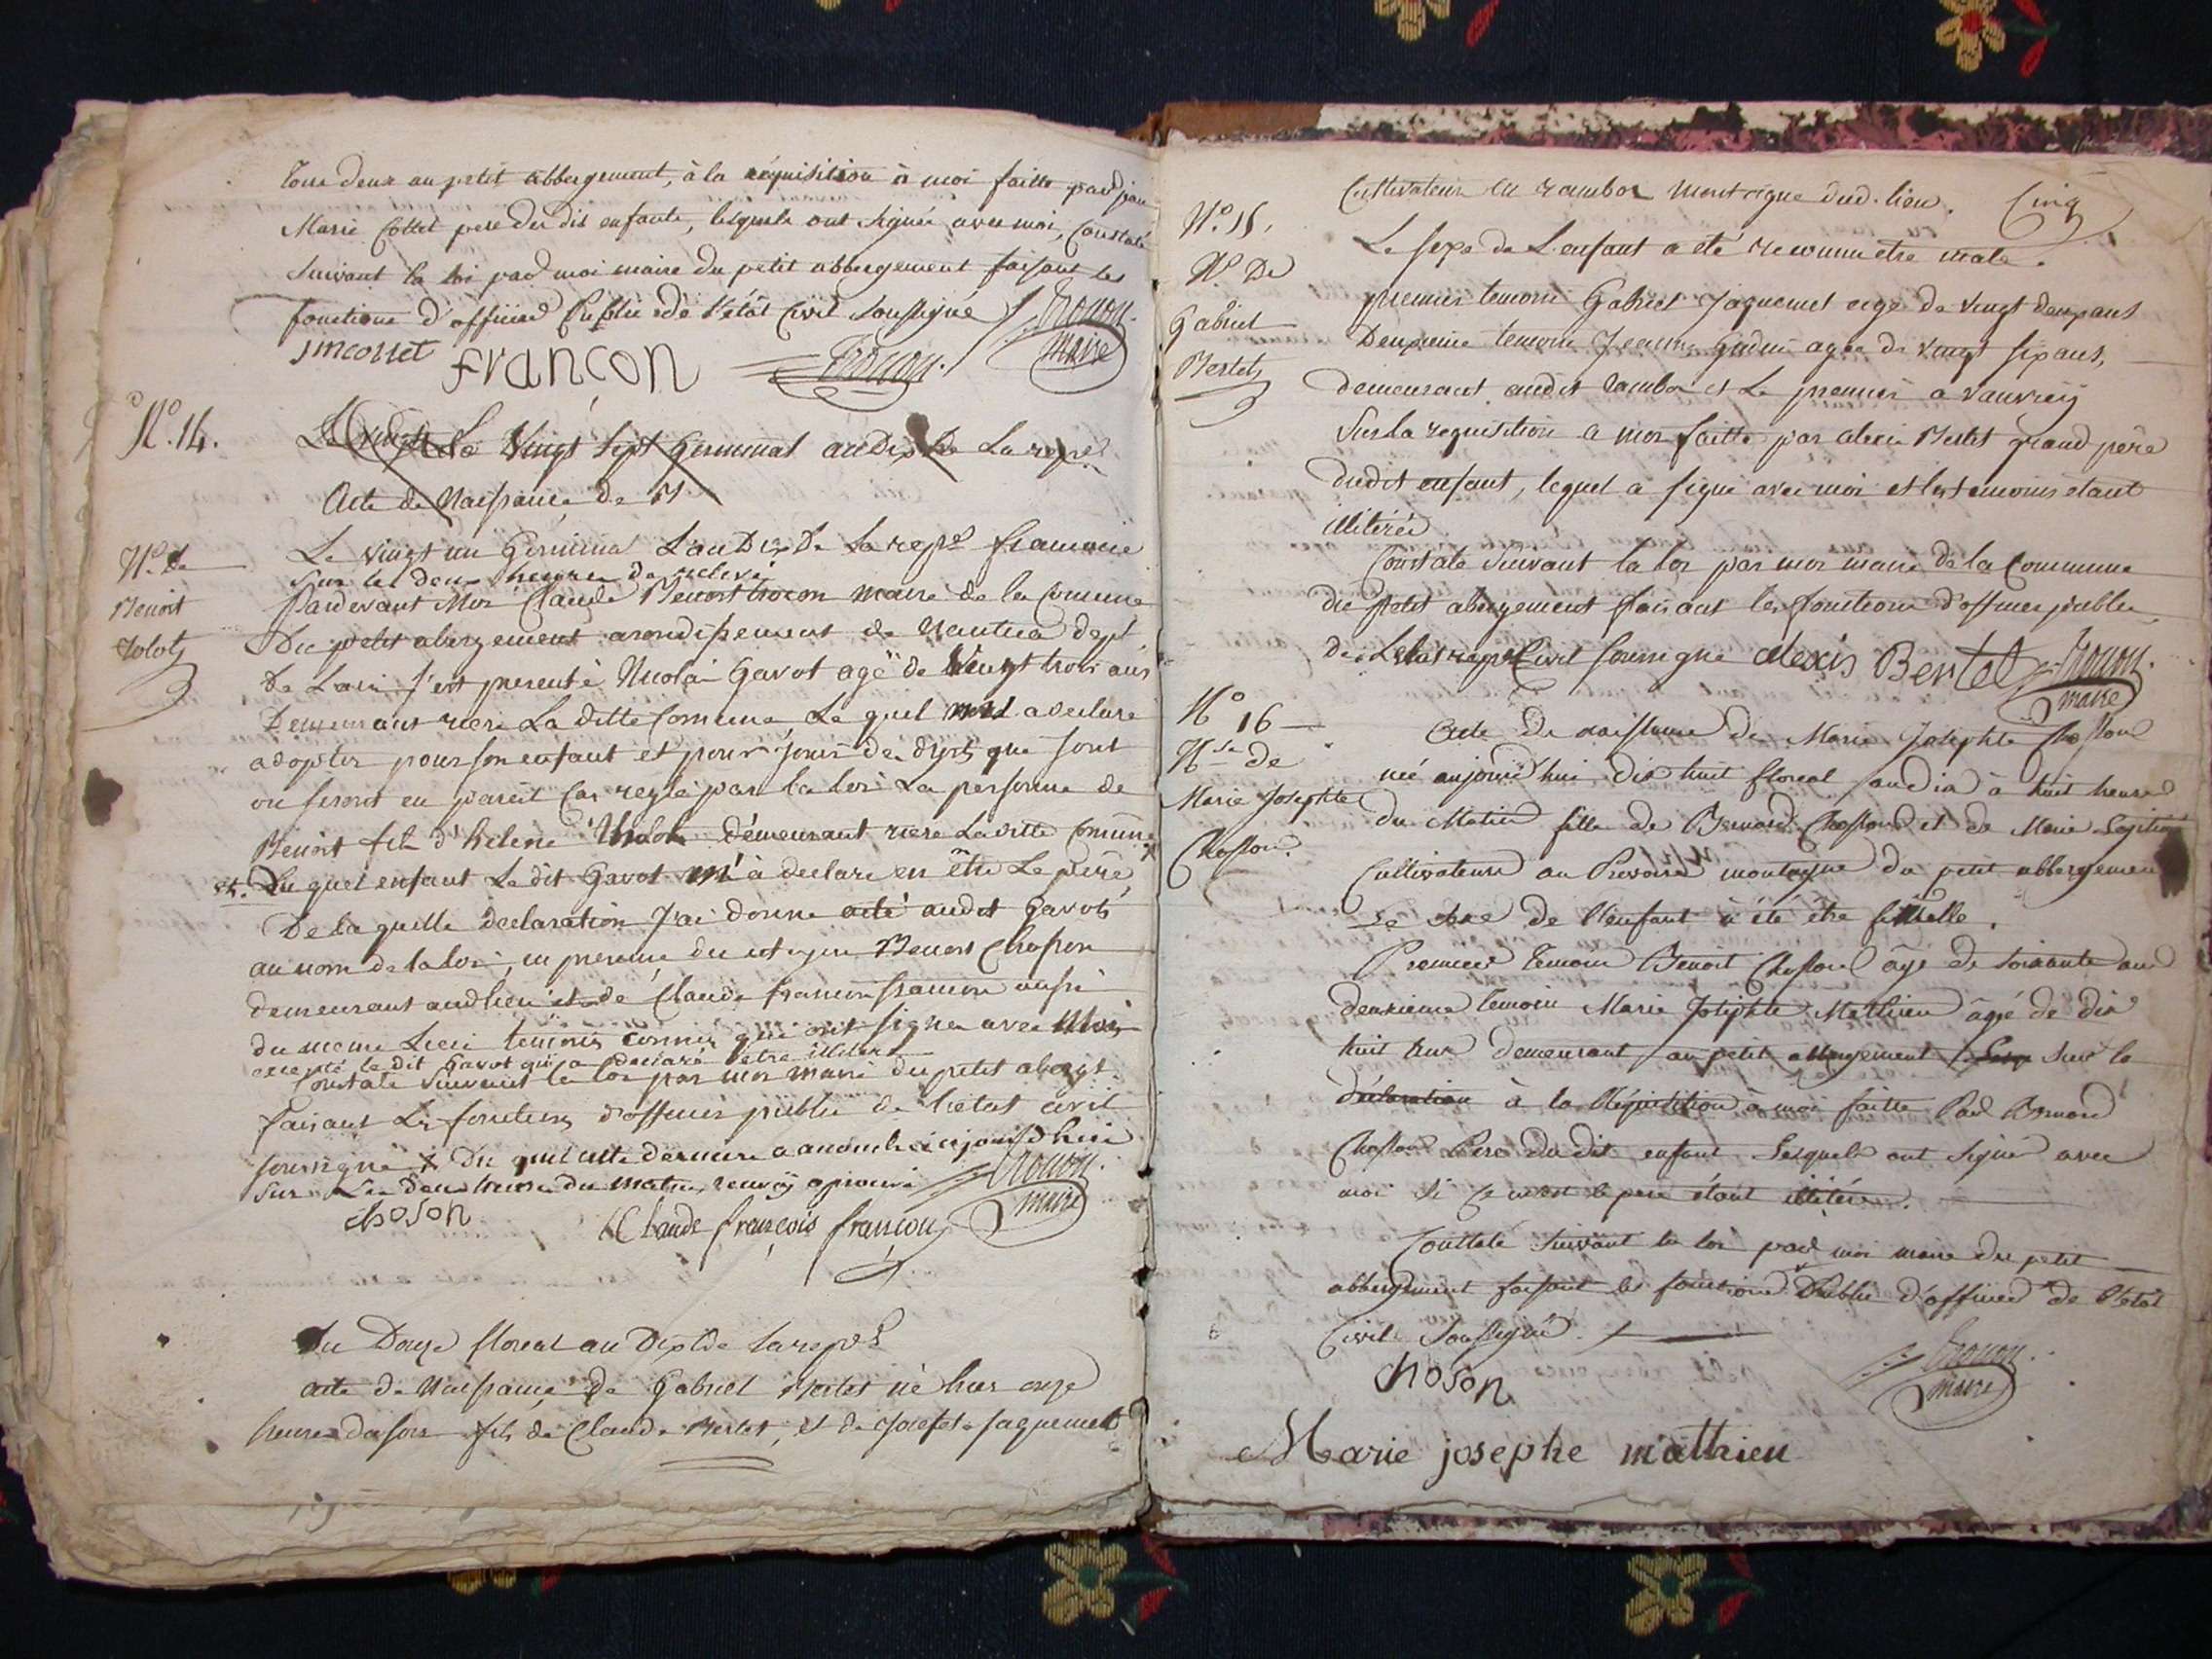 tous deux au petit abbergement, à la réquisition à moi faitte par jean
Marie Collet pere du dit enfants, lesquels ont signés avec moi, Constaté
suivant la loi par moi maire du petit abbergement faisant les
fonctions d'officier Public de l'état Civil soussigné
jmcollet francon maire
N.º 14.
Le vingt sept germinal an Dix De La rep
Acte de Naissance de
N.ce De
Benoit
Le vingt un Germinal L'an Dix De La rep.e francaise
sur les deux heures de relevé
Pardevant Moi Claude Benoit maire de la Comune
Du petit abergement arondissement de Nantua dept
De Lain s'est presenté Nicolas Gavot agé de Vingt trois ans
Demeurant riere La ditte Comune Le quel m'a declare
adopter pour son enfant et pour jouir des dits que sont
ou seront en pareil Cas reglé par la loi La personne de
Benoit fils d'helene demeurant riere La ditte Comune
Du quel enfant Le dit Gavot m'à declare en être Le père
De la quelle declaration J'ai donné acte audit Gavot
au nom de la Loi, en presence du citoyen Benoit Choson
demeurant aud lieu et de Claude francois francon aussi
du meme Lieu temoins connus qui ont signer avec Moi
excepté le dit Gavot qui a declaré être illiteré
Constaté suivant la loi par moi maire du petit abergt.
faisant Les fonctions d'officier public de l'etat civil
soussigné X Du quel cette derniere a acouchée cejourd'hui
sur Les deux heures du matin, renvoy aprouvé
choson Claude françois françon maire
Du Douze floreal an Dix De La rep
acte de Naissance de Gabriel Bertet né hier onze
heures du soir fils de Claude Bertet, et de Josefte jaquemet
Cultivateur en rambos montagne dud. lieu. Cinq
N.º 15.
N.ce De
Gabriel
Bertet
Le sexe de L'enfant a été reconnu etre male.
premier temoin Gabriel Jaquemet agé de vingt deux ans
Deuxieme temoin agée de vingt six ans,
demeurant audit rambos et Le premier a vauvrey
Sur la requisition a moi faitte par alexis Bertet grand père
dudit enfant, lequel a signé avec moi et les temoins etant
illiterée.
Constaté suivant la loi par moi maire de la Commune
du Petit abergement faisant les fonctions d'officier public
de Civil soussigné alexis Bertet maire
Nº 16
N.ce de
Marie Josephte
Chosson.
Acte de naissance de Marie Josephte Chosson
née aujourd'hui dix huit floreal an dix à huit heures
du Matin fille de Bernard Chosson et de Marie
Cultivateurs au montagne du petit abbergement
Le sexe de l'enfant à été être femelle.
Premier temoin Benoit Chosson âgé de soixante ans
deuxieme temoin Marie Josephte Mathieu âgé de dix
huit ans demeurant au petit abbergement sur la
déclaration à la Réquisition à moi faitte Par Bernard
Chosson Pere du dit enfant Lesquels ont signé avec
moi si ce n'est le pere étant illitéré.
Constaté suivant la loi par moi maire du petit
abbergement faisant les fonctions Public d'officier de l'etat
Civil soussigné.
choson maire
Marie josephe mathieu